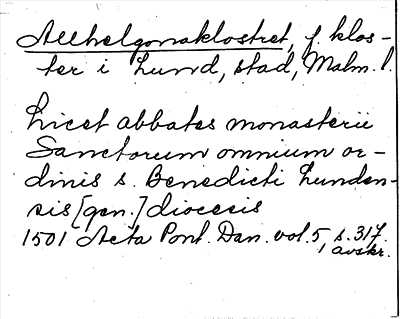 Allhelgonaklostret, f. klos-
ter i Lund, stad, Malm. l.
Licet abbates monasterii
Sanctorum omnium or-
dinis s. Benedicti Lunden-
sis [gen.] diocesis
1501 Acta Pont. Dan. vol. 5, s. 317.
1 avskr.